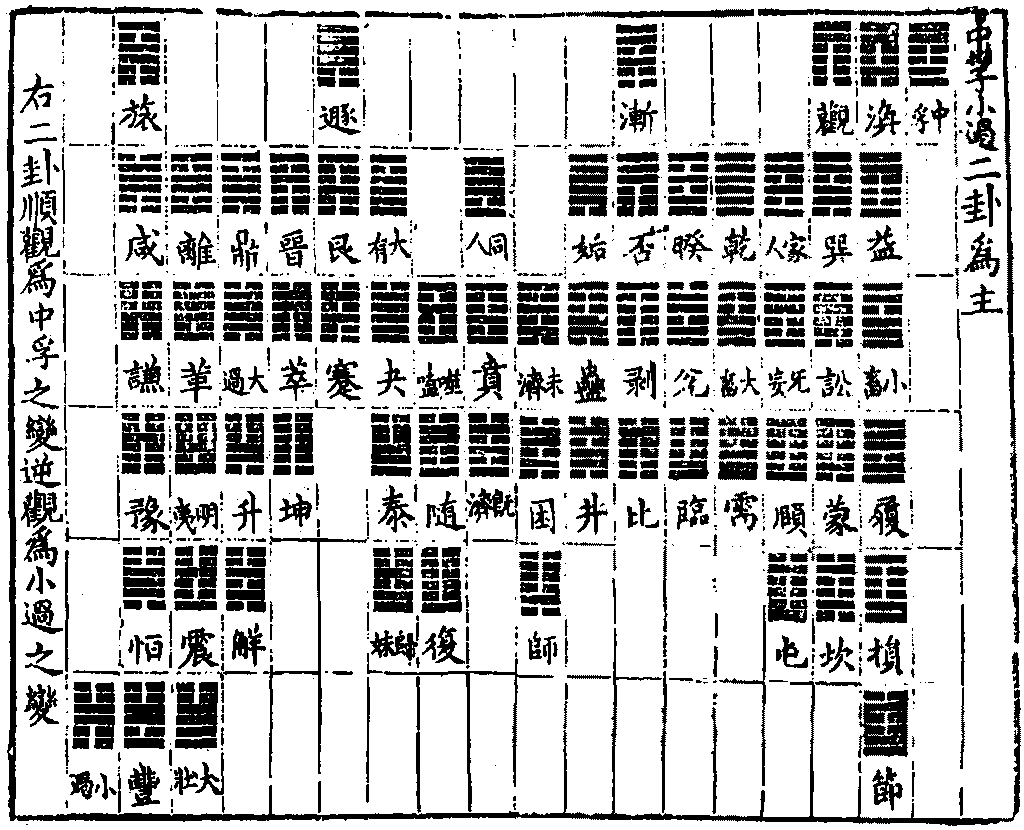 中孚小過二卦為主
中孚
渙
益
小畜
履
損
節
觀
巽
訟
蒙
坎
家人
无妄
頤
屯
乾
大畜
需
睽
兌
臨
漸
否
剥
比
姤
蠱
井
未濟
困
師
同人
賁
既濟
噬嗑
随
復
大有
夬
泰
歸妹
遯
艮
蹇
晉
萃
坤
鼎
大過
升
解
離
革
明夷
震
大壯
旅
咸
謙
豫
恒
豐
小過
右二卦順觀為中孚之變逆觀為小過之變